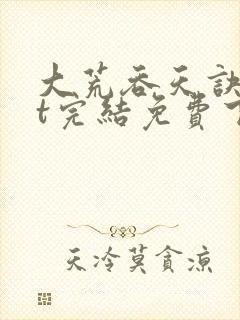 大荒吞天訣
t完結免費
天冷莫貪涼